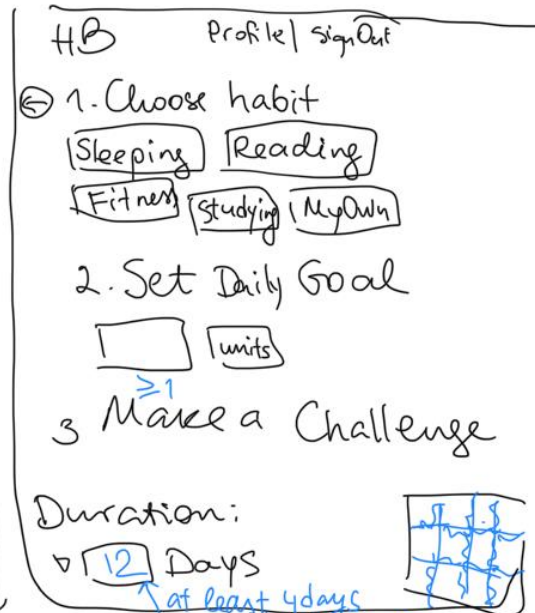 HB Profile | SignOut
← 1. Choose habit
Sleeping Reading
Fitness Studying MyOwn
2. Set Daily Goal
units
≥1
3 Make a Challenge
Duration:
12 Days
at least 4 days